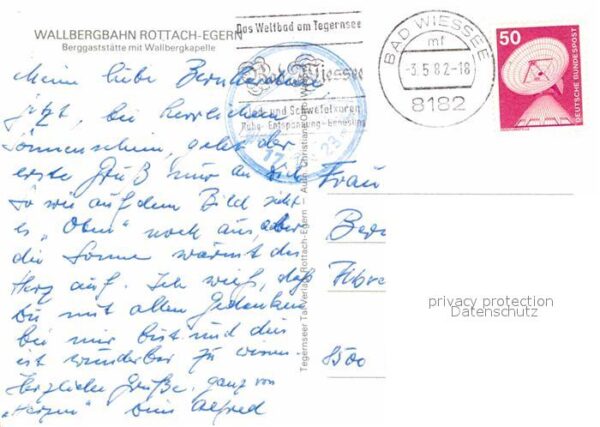 WALLBERGBAHN ROTTACH-EGERN
Berggaststätte mit Wallbergkapelle
Meine liebe
jetzt, bei herrlichem
Sonnenschein, geht der
erste Gruß nur an Dich
So wie auf dem Bild sieht
es "Oben" noch aus, aber
die Sonne wärmt das
Herz auf. Ich weiß, daß
Du mit allen Gedanken
bei mir bist und dies
ist wunderbar zu wissen.
Herzliche Grüße, ganz von
"Herzen" Dein Alfred
Das Weltbad am Tegernsee
Bad Wiessee
Jod- und Schwefelkuren
Ruhe - Entspannung - Erholung
BAD WIESSEE
mf
-3.5.82-18
8182
50
DEUTSCHE BUNDESPOST
Tegernseer Tal Verlag, Rottach-Egern
Frau
8500
privacy protection
Datenschutz